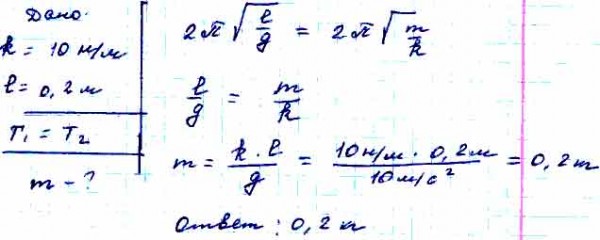 Дано:
k = 10 н/м
l = 0,2 м
T₁ = T₂
m - ?
2π√(l/g) = 2π√(m/k)
l/g = m/k
m = k·l/g = 10 н/м · 0,2 м / 10 м/с² = 0,2 кг
Ответ: 0,2 кг